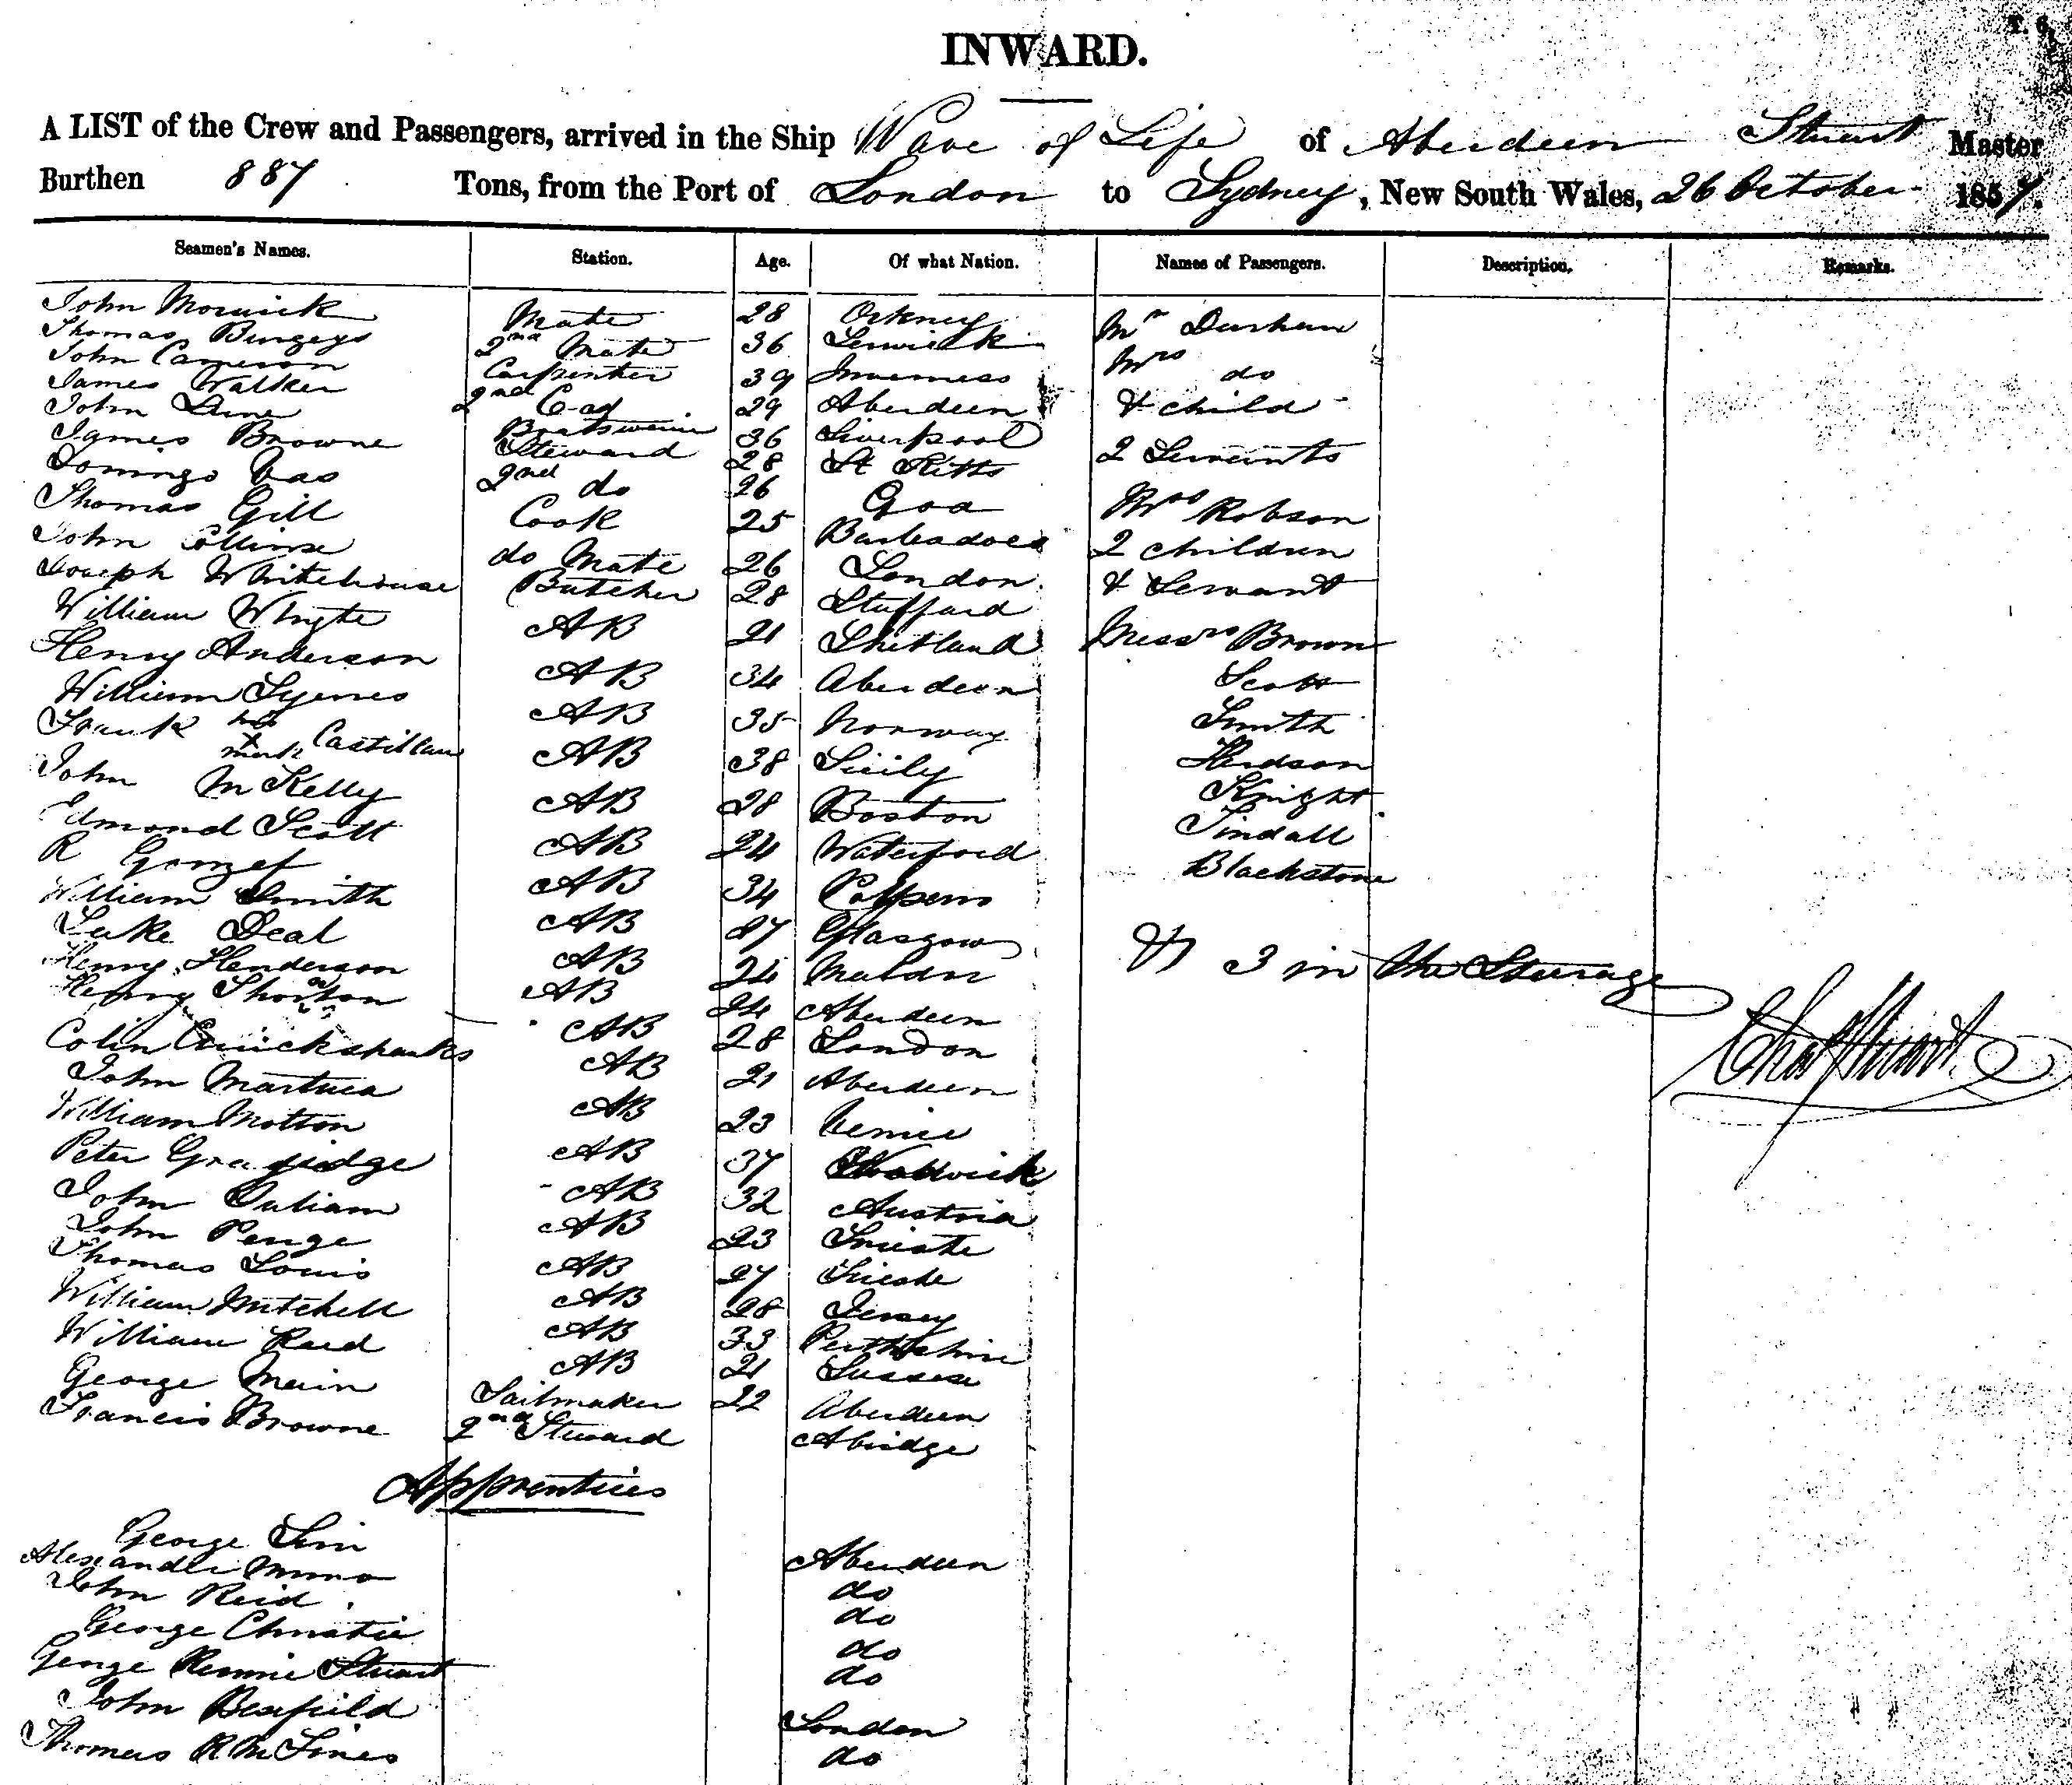 T. 6.
INWARD.
A LIST of the Crew and Passengers, arrived in the Ship Wave of Life of Aberdeen Stuart Master
Burthen 887 Tons, from the Port of London to Sydney, New South Wales, 26 October 1857.
Seamen's Names. Station. Age. Of what Nation. Names of Passengers. Description. Remarks.
John Morwick Mate 28 Orkney Mr Durham
Thomas Burgess 2nd Mate 36 Lerwick Mrs do
John Cameron Carpenter 39 Inverness & child
James Walker 2nd 29 Aberdeen
John Lune Boatswain 36 Liverpool 2 Servants
James Browne Steward 28 St Kitts
Domingo Vas 2nd do 26 Goa Mrs Robson
Thomas Gill Cook 25 Barbadoes 2 children
John Collins do Mate 26 London & Servant
Joseph Whitehouse Butcher 28 Stafford
William Whyte AB 21 Shetland Messrs Brown
Henry Anderson AB 34 Aberdeen Scott
William Symes AB 35 Norway Smith
Frank his x mark Castillan AB 38 Sicily Hudson
John McKelly AB 28 Boston Knight
Edmond Scott AB 24 Waterford Tindall
R AB 34 Blackstone
William Smith AB 27 Glasgow
Luke Deal AB 24 Maldon & 3 in the Steerage
Henry Henderson AB 24 Aberdeen
Henry AB 28 London Chas Stuart
Colin Cruickshanks AB 21 Aberdeen
John AB 23 Venice
William Motton AB 37
Peter AB 32 Austria
John Juliam AB 23 Trieste
John Penge AB 27 Trieste
Thomas Louis AB 28 Jersey
William Mitchell AB 33 Perthshire
William Reid AB 21 Sussex
George Main Sailmaker 22 Aberdeen
Francis Browne 2nd Steward Abridge
Apprentices
George Sim Aberdeen
Alexander Munro do
John Reid do
George Christie do
George Rennie Stuart do
John London
Thomas do